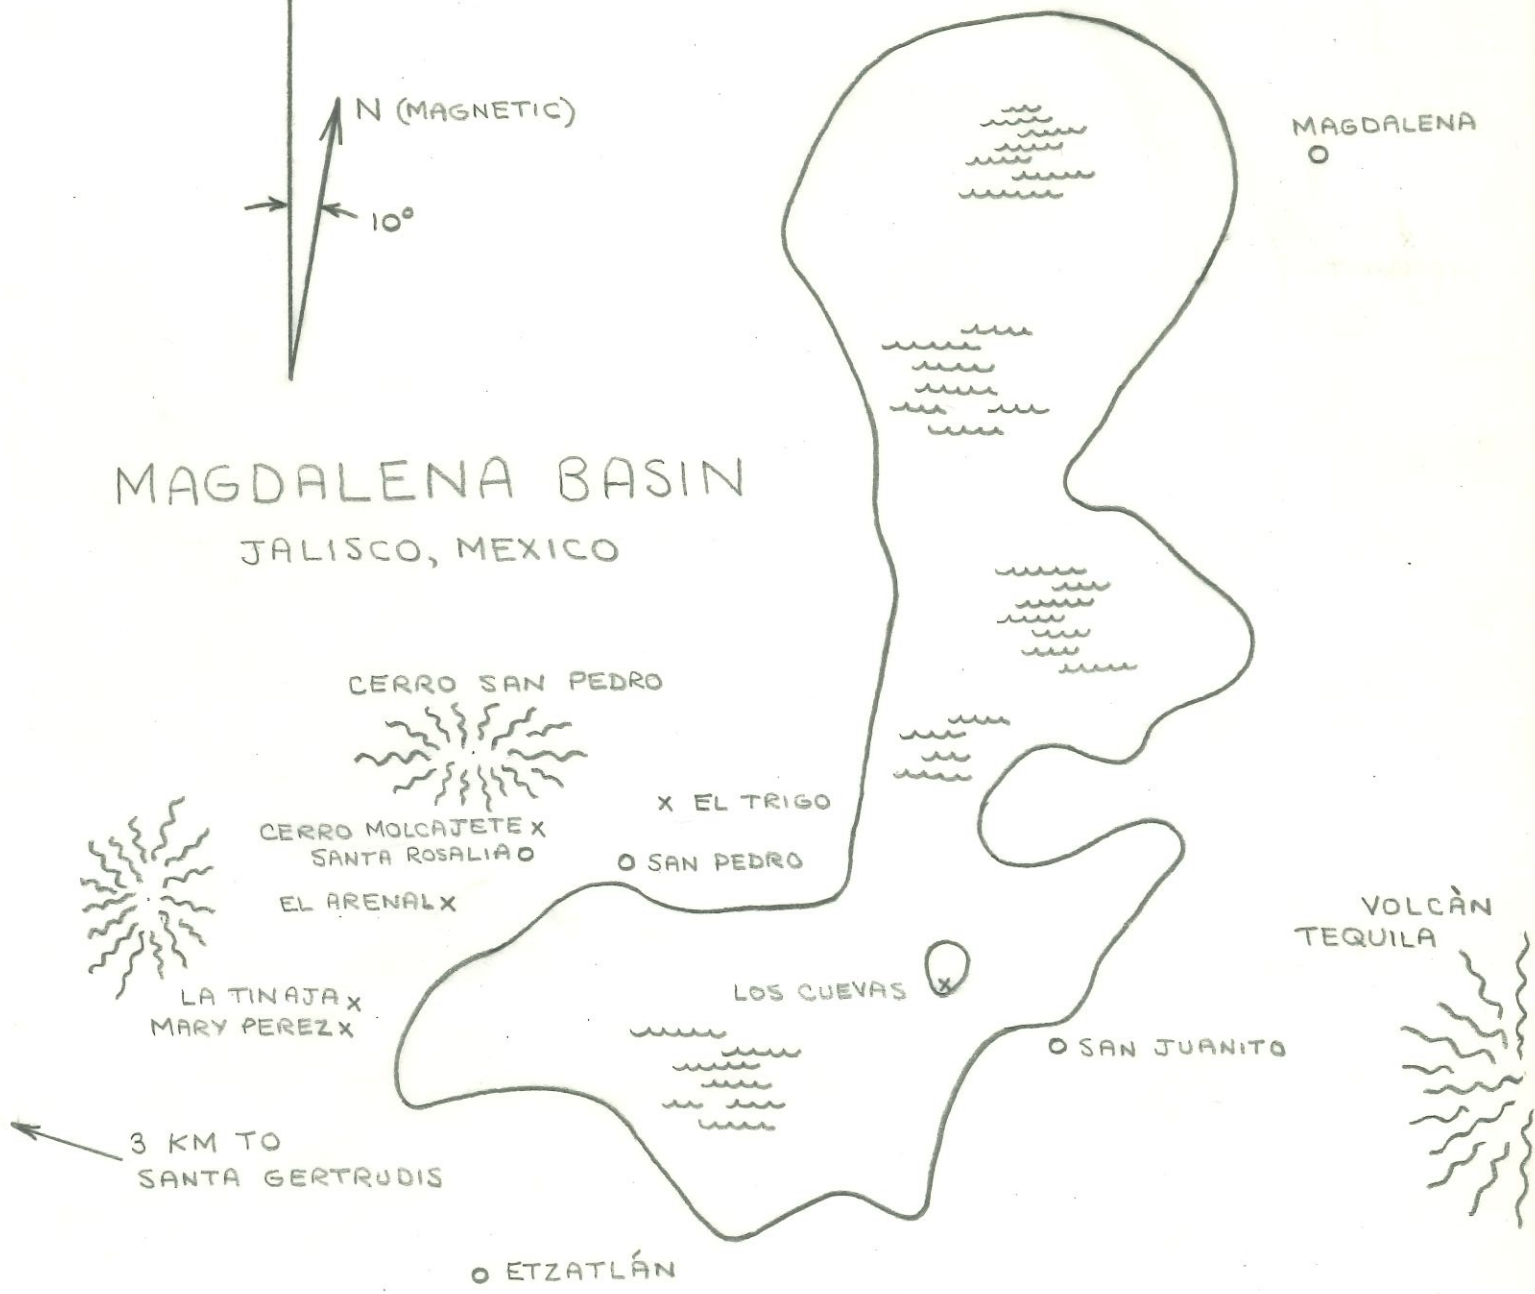 N (MAGNETIC)
MAGDALENA
10°
MAGDALENA BASIN
JALISCO, MEXICO
CERRO SAN PEDRO
x EL TRIGO
CERRO MOLCAJETE x
SANTA ROSALIA
SAN PEDRO
EL ARENAL x
VOLCÀN
TEQUILA
LA TINAJA x
LOS CUEVAS x
MARY PEREZ x
SAN JUANITO
3 KM TO
SANTA GERTRUDIS
ETZATLÁN